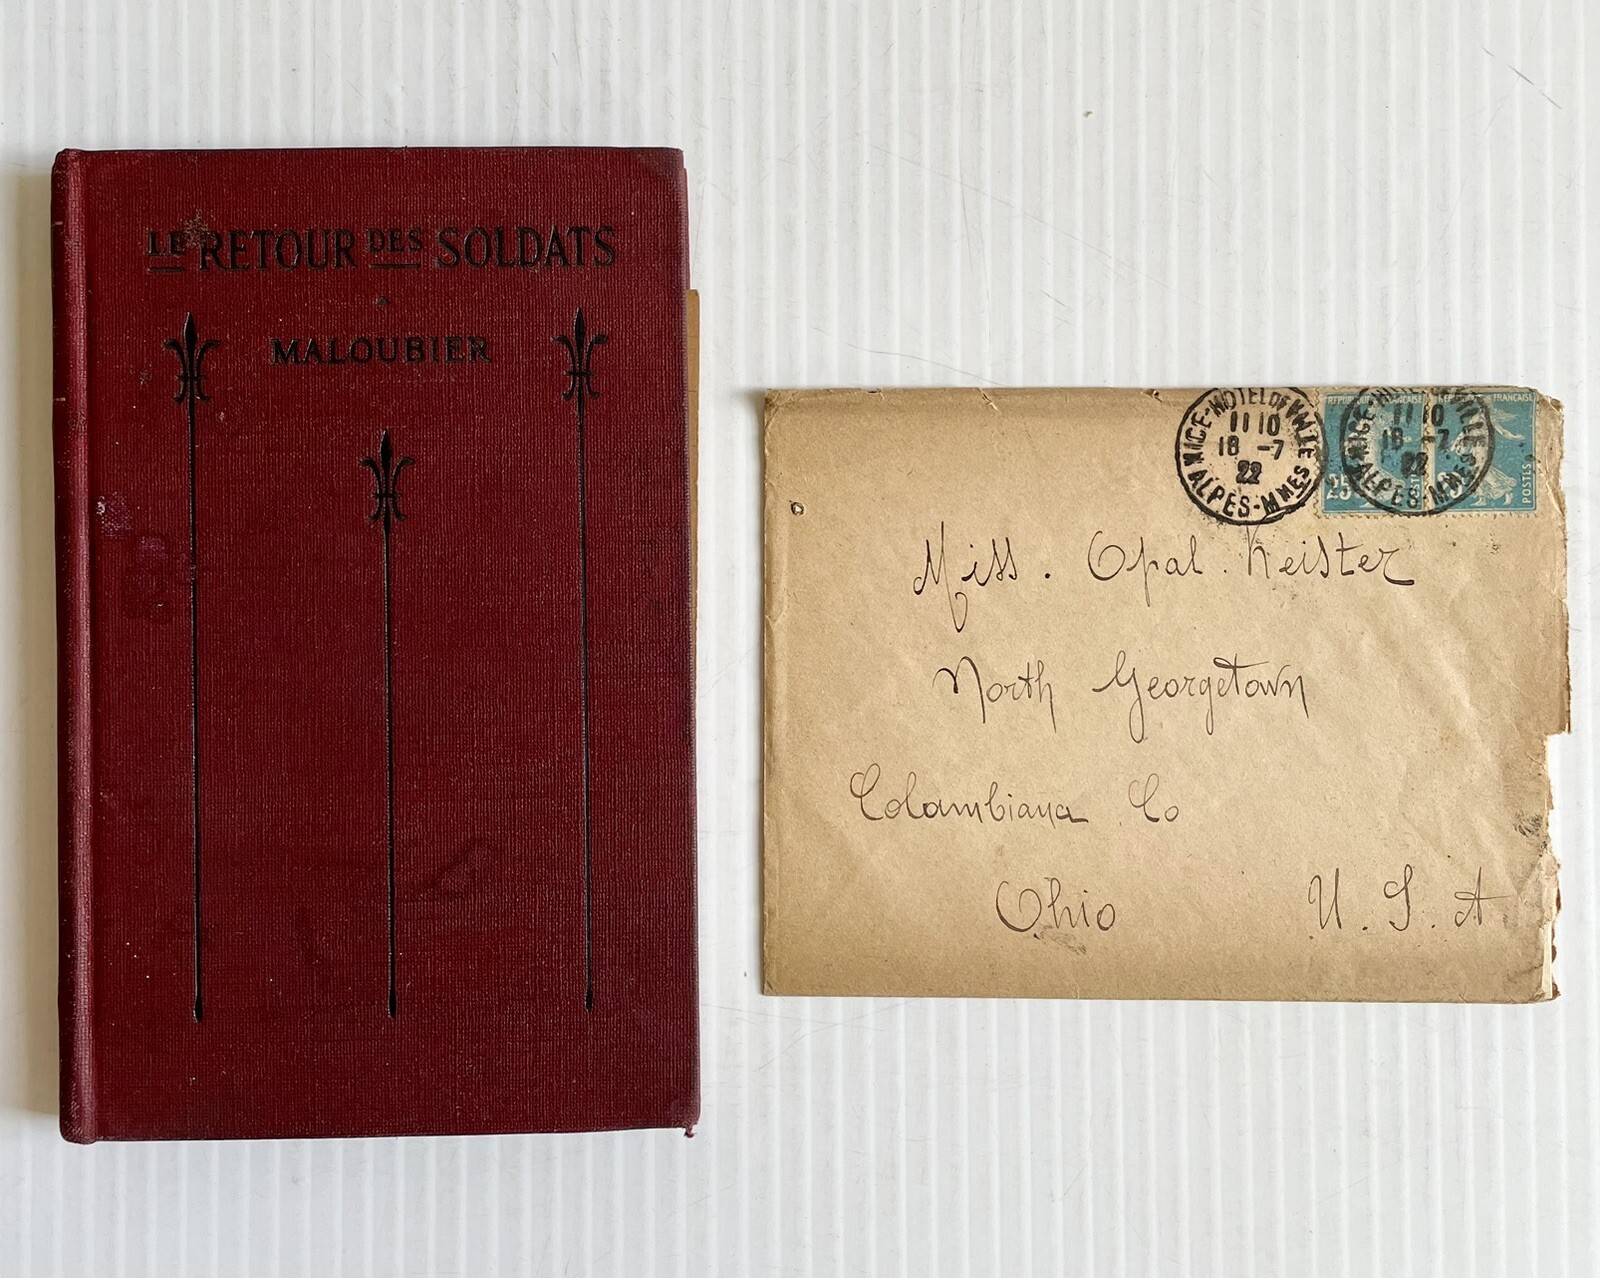 LE RETOUR DES SOLDATS
MALOUBIER
NICE-HOTEL DE VILLE
11 10
18 -7
22
ALPES-MMES
REPUBLIQUE FRANCAISE
25
11 10
18 -7
22
ALPES-MMES
FRANCAISE
POSTES
Miss. Opal. Keister
North Georgetown
Colambiana Co
Ohio U. S. A